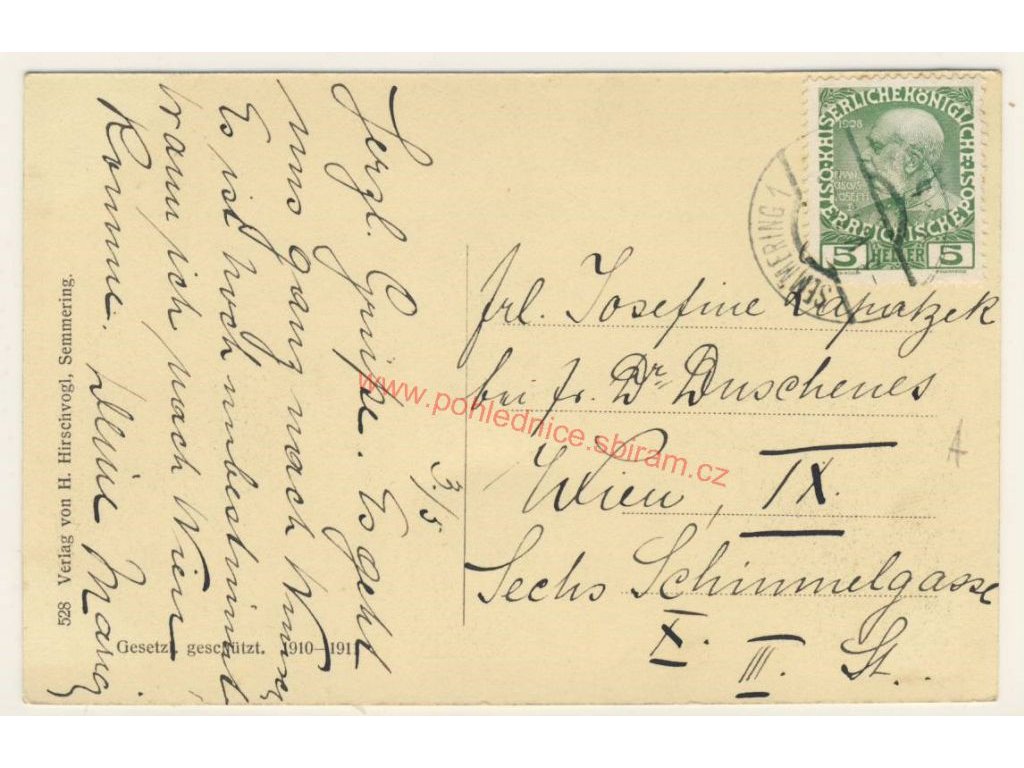 3./5
Herzl. Grüße. Es geht
uns ganz nach Wunsch
Es ist noch unbestimmt
wann ich nach Wien
komme. Deine
Frl. Josefine
bei Fr. Dr Duschenes
Wien, IX.
Sechs Schimmelgasse
X. III. St.
ÖSTERREICHISCHE POST KAISERLICHE KÖNIGLICHE
1908
5 HELLER 5
SEMMERING 1
528 Verlag von H. Hirschvogl, Semmering.
Gesetzl. geschützt. 1910—1911
www.pohlednice.sbiram.cz